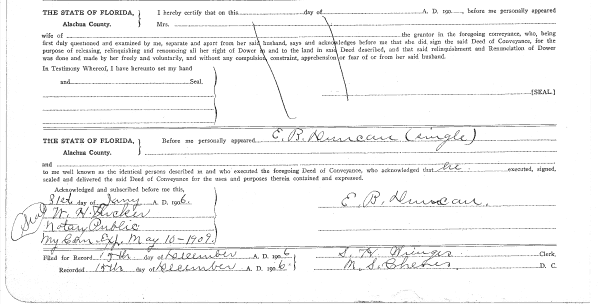 THE STATE OF FLORIDA, } I hereby certify that on this day of A. D. 190 , before me personally appeared
Alachua County. } Mrs.
wife of the grantor in the foregoing conveyance, who, being
first duly questioned and examined by me, separate and apart from her said husband, says and acknowledges before me that she did sign the said Deed of Conveyance, for the
purpose of releasing, relinquishing and renouncing all her right of Dower in and to the land in said Deed described, and that said relinquishment and Renunciation of Dower
was done and made by her freely and voluntarily, and without any compulsion, constraint, apprehension or fear of or from her said husband.
In Testimony Whereof, I have hereunto set my hand
and Seal.
[SEAL]
THE STATE OF FLORIDA, } Before me personally appeared E. B. Duncan (single)
Alachua County. }
and
to me well known as the identical persons described in and who executed the foregoing Deed of Conveyance, who acknowledged that he executed, signed,
sealed and delivered the said Deed of Conveyance for the uses and purposes therein contained and expressed.
Acknowledged and subscribed before me this,
31st day of Jany A. D. 1906.
E. B. Duncan.
(Seal) W. H.
Notary Public
My Com. Exp. May 10-1909.
Filed for Record 15th day of December A. D. 1906 S. H. Wienges Clerk,
Recorded 15th day of December A. D. 1906. M. S. Cheves D. C.